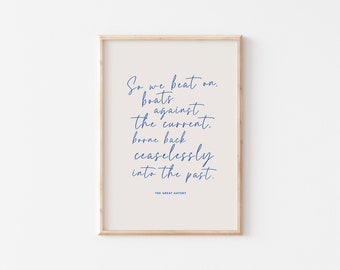 So we beat on,
boats
against
the current,
borne back
ceaselessly
into the past.
THE GREAT GATSBY